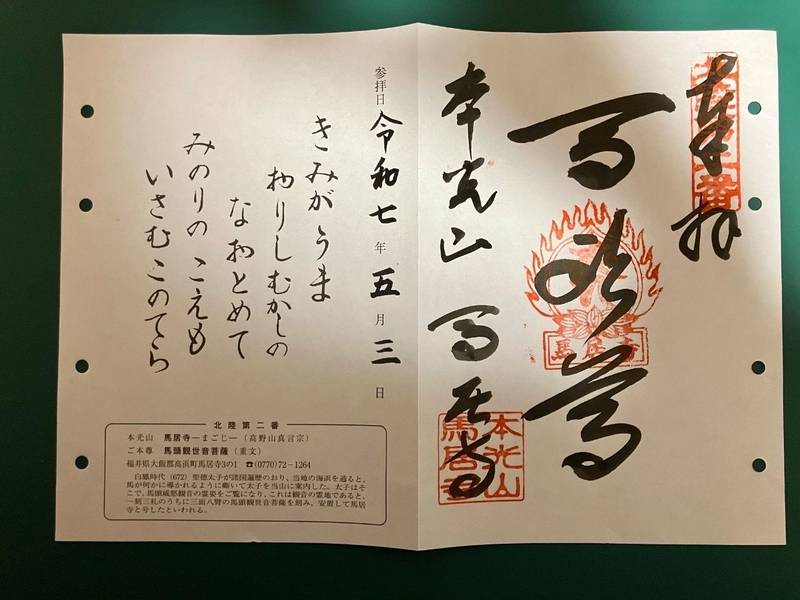 奉拝
馬頭尊
本光山 馬居寺
本光山
馬居寺
馬居寺
参拝日 令和七年五月三日
きみがうま
わりしむかしの
なおとめて
みのりのこえも
いさむこのてら
北陸第二番
本光山 馬居寺―まごじ―(高野山真言宗)
ご本尊 馬頭観世音菩薩(重文)
福井県大飯郡高浜町馬居寺3の1 ☎(0770)72-1264
白鳳時代(672)聖徳太子が諸国遍歴のおり、当地の海浜を通ると、
馬が何かに導かれるように嘶いて太子を当山に案内した。太子はそ
こで、馬頭威怒観音の霊姿をご覧になり、これは観音の霊地であると、
一刻三礼のうちに三面八臂の馬頭観世音菩薩を刻み、安置して馬居
寺と号したといわれる。